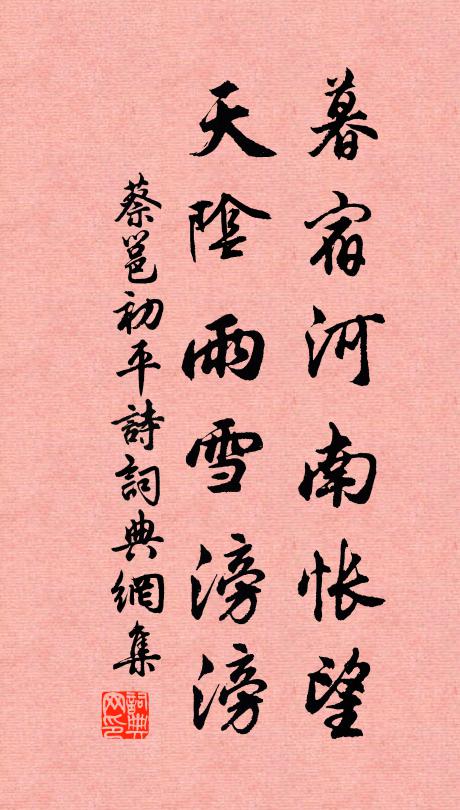 暮宿河南悵望
天陰雨雪滂滂
蔡邕初平詩詞典網集
詞典网印